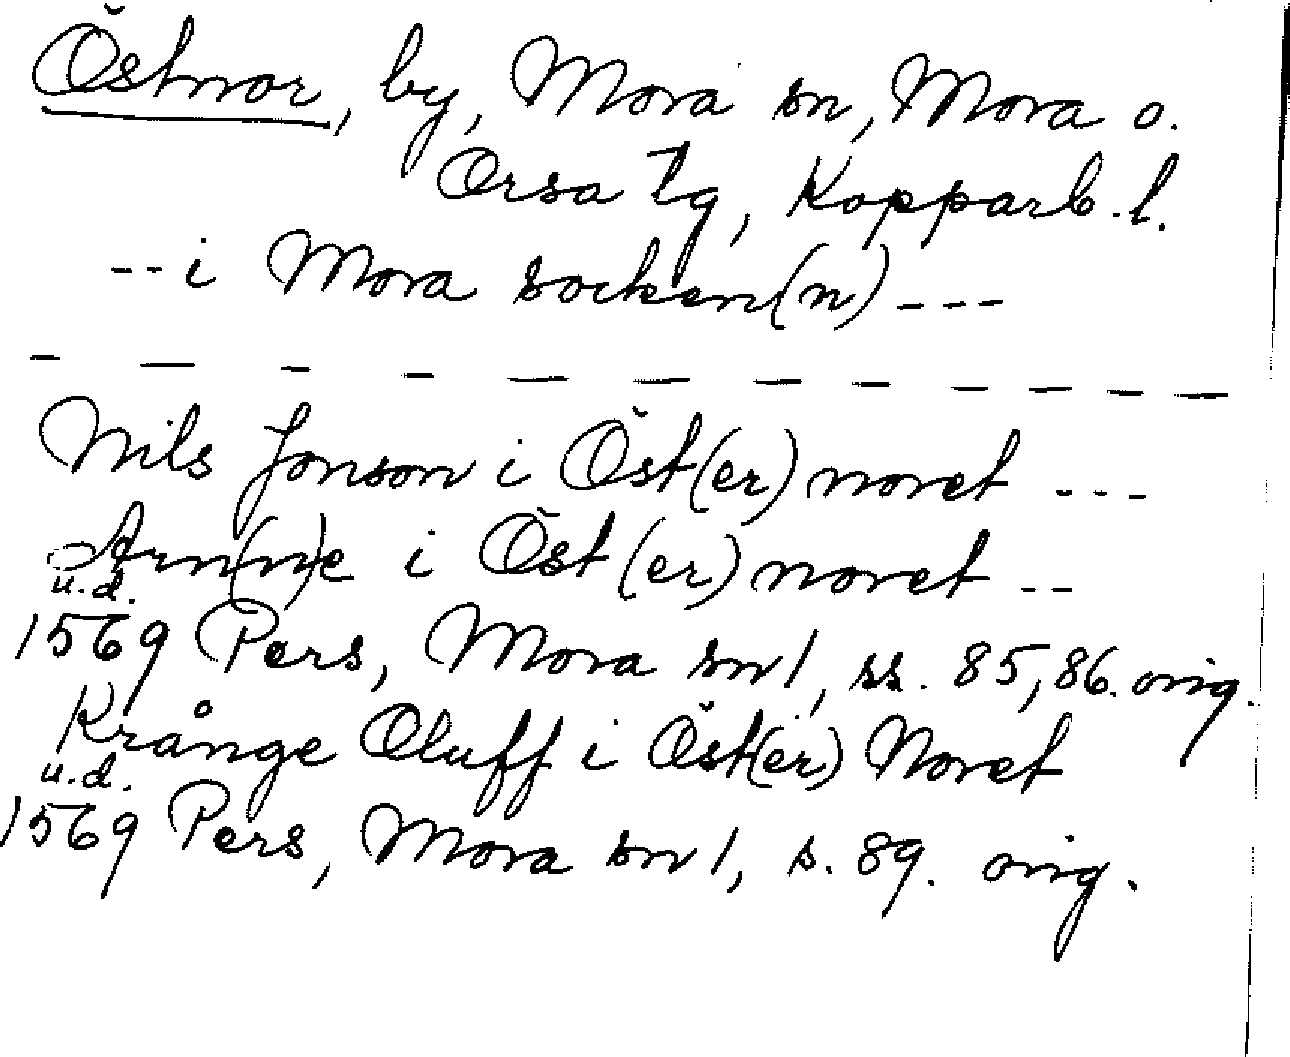 Östnor, by, Mora sn, Mora o.
Orsa tg, Kopparb. l.
-- i Mora socken(n) ---
— — — — — — — — — — — —
Nils Jonson i Öst(er)noret ---
Arn(n)e i Öst(er)noret --
u.d.
1569 Pers, Mora sn 1, ss. 85, 86. orig.
Krånge Oluff i Öst(er) Noret
u.d.
1569 Pers, Mora sn 1, s. 89. orig.